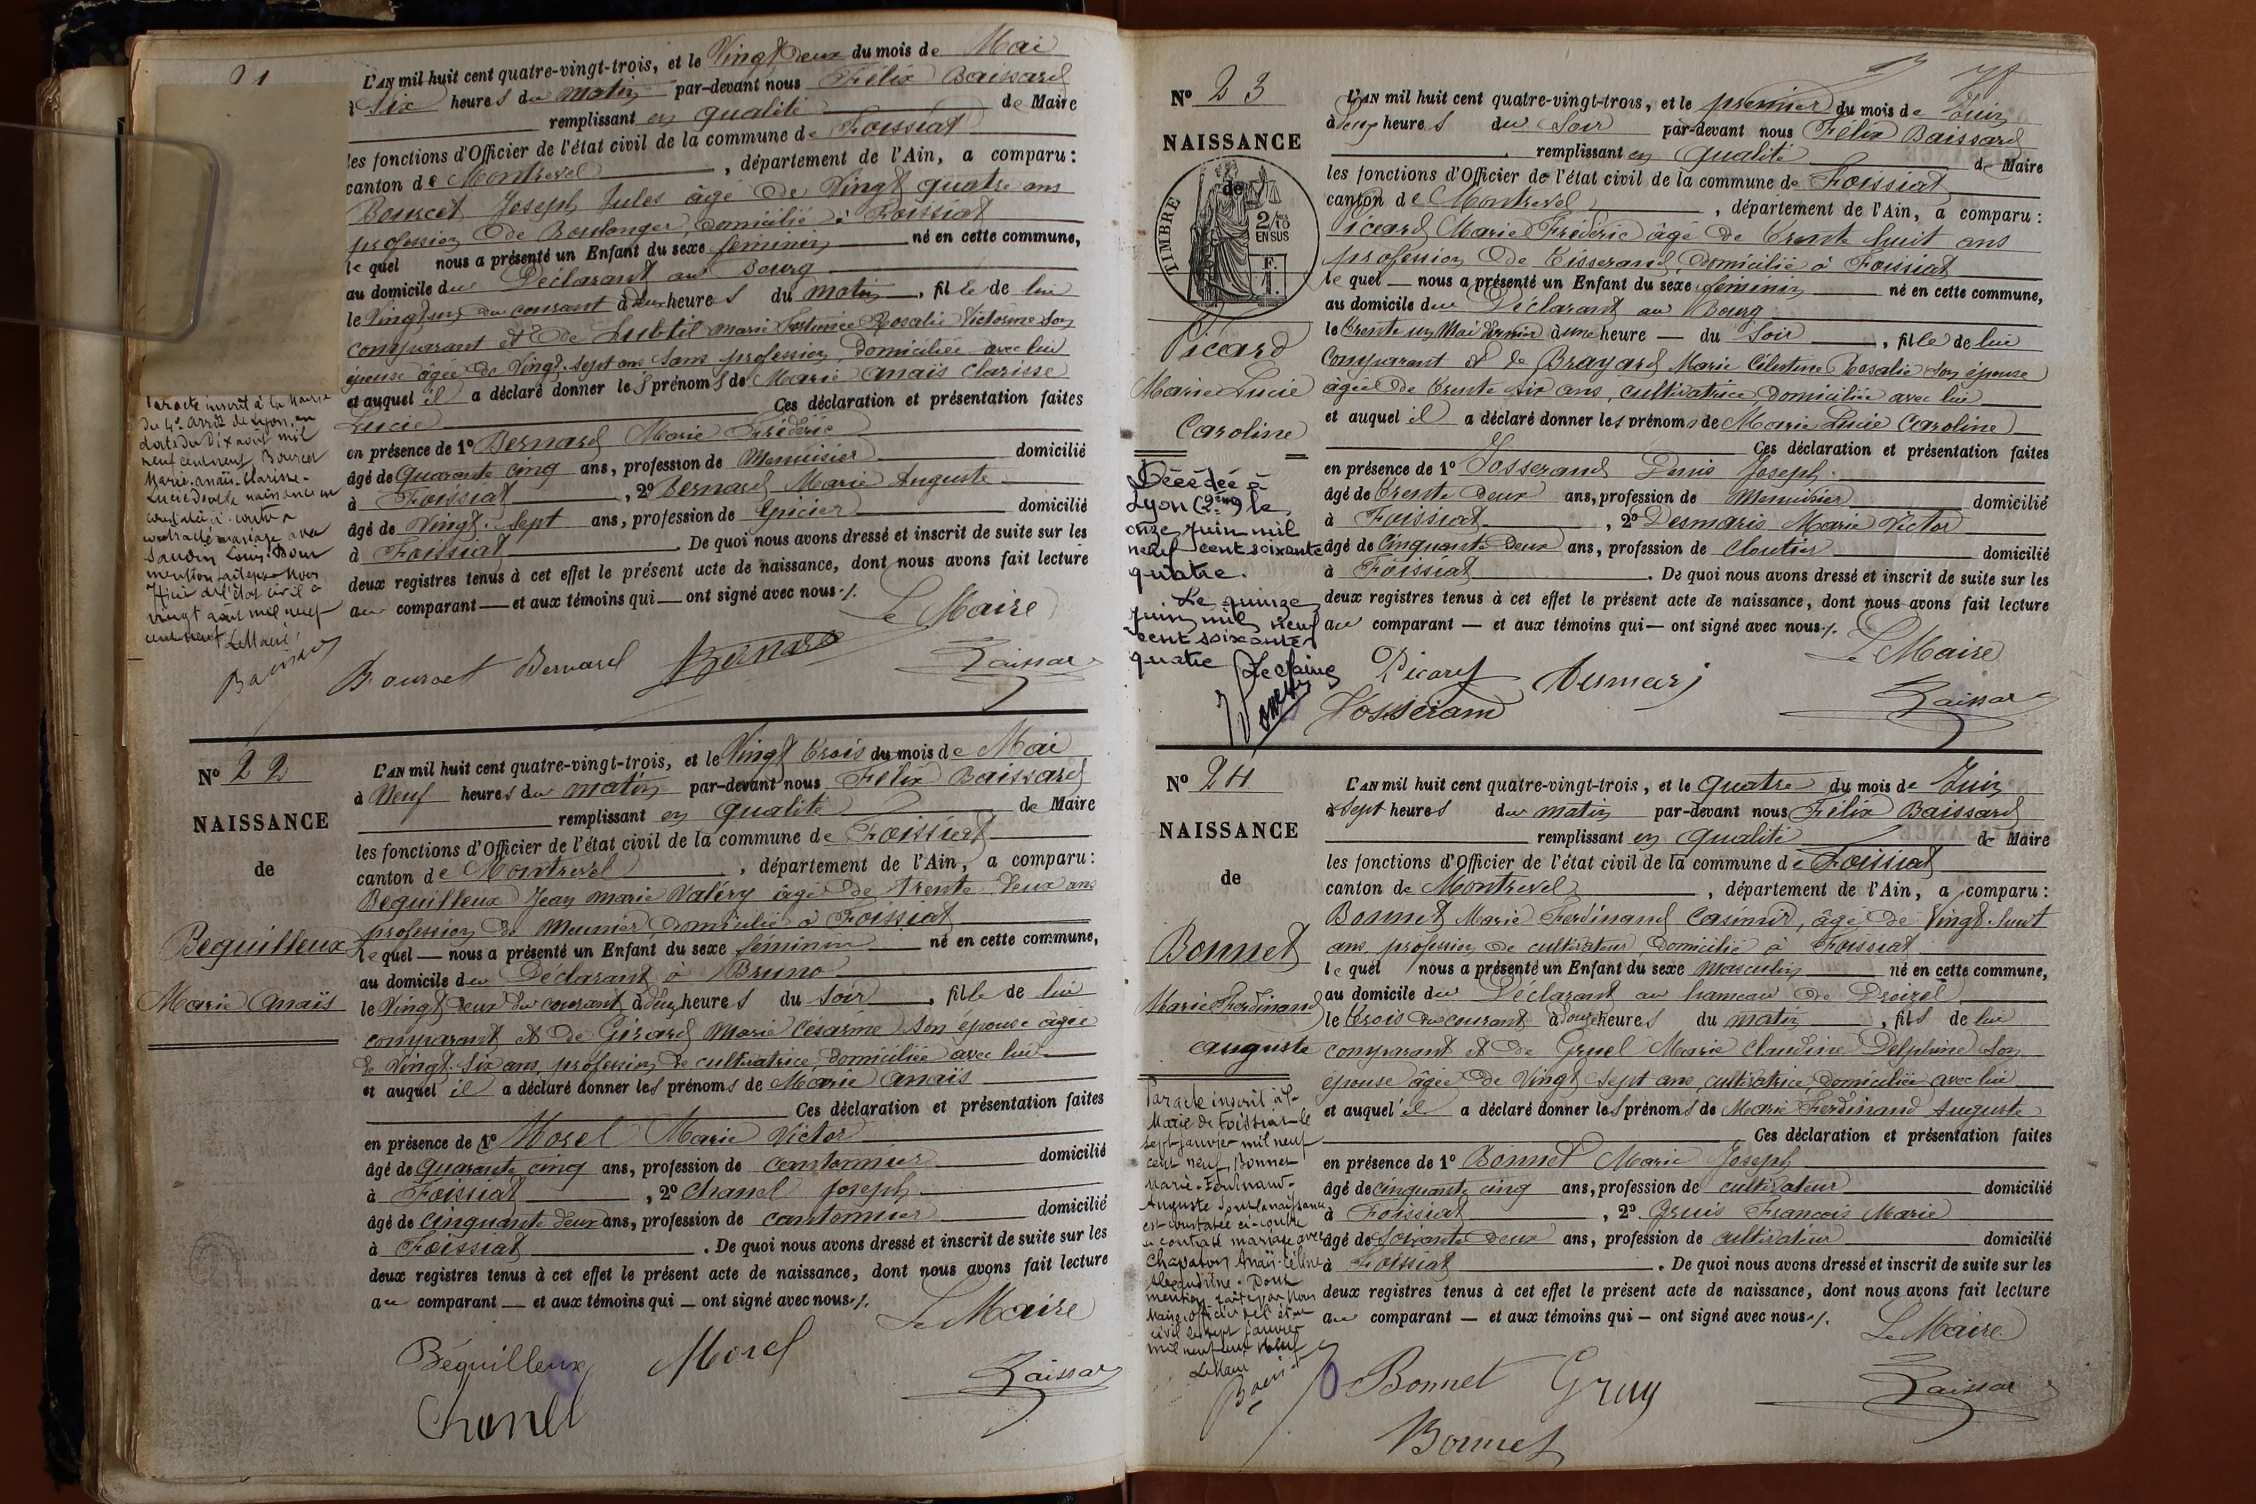 21
L'AN mil huit cent quatre-vingt-trois, et le Vingt Deux du mois de Mai
à Six heures du matin par-devant nous Félix Baissard
remplissant en qualité de Maire
les fonctions d'Officier de l'état civil de la commune de Foissiat
canton de Montrevel, département de l'Ain, a comparu:
Bourcet Joseph Jules âgé de Vingt quatre ans
profession de Boulanger, domicilié à Foissiat
le quel nous a présenté un Enfant du sexe féminin né en cette commune,
au domicile du Déclarant au Bourg
le Vingt un du courant à heures du matin, fille de lui
comparant et de Subtil Marie Rosalie Victorine son
épouse âgée de Vingt-sept ans sans profession, domiciliée avec lui
et auquel il a déclaré donner les prénoms de Marie Anaïs Clarisse
Lucie Ces déclaration et présentation faites
en présence de 1° Bernard Marie Frédéric
âgé de Quarante cinq ans, profession de Menuisier domicilié
à Foissiat, 2° Bernard Marie Auguste
âgé de Vingt-Sept ans, profession de Epicier domicilié
à Foissiat. De quoi nous avons dressé et inscrit de suite sur les
deux registres tenus à cet effet le présent acte de naissance, dont nous avons fait lecture
au comparant — et aux témoins qui — ont signé avec nous ./.
Le Maire
Bourcet Bernard Bernard Baissard
Par acte inscrit à la Mairie
du 4e arrdt de Lyon, en
date du Dix août mil
neuf cent neuf, Bourcet
Marie-Anaïs-Clarisse-
Lucie dont la naissance est
constatée ci-contre a
contracté mariage avec
Louis. Pour
mention faite par Nous
de l'état civil le
vingt août mil neuf
cent neuf Le Maire,
N° 22
NAISSANCE
de
Bequilleux
Marie Anaïs
L'AN mil huit cent quatre-vingt-trois, et le Vingt Trois du mois de Mai
à Neuf heures du matin par-devant nous Félix Baissard
remplissant en qualité de Maire
les fonctions d'Officier de l'état civil de la commune de Foissiat
canton de Montrevel, département de l'Ain, a comparu:
Bequilleux Jean Marie Valéry âgé de Trente Deux ans
profession de Meunier, domicilié à Foissiat
le quel — nous a présenté un Enfant du sexe féminin né en cette commune,
au domicile du Déclarant à Bruno
le Vingt Deux du courant à heures du Soir, fille de lui
comparant et de Girard Marie Césarine son épouse âgée
de Vingt-Six ans, profession de cultivatrice, domiciliée avec lui
et auquel il a déclaré donner les prénoms de Marie Anaïs
Ces déclaration et présentation faites
en présence de 1° Morel Marie Victor
âgé de Quarante cinq ans, profession de cantonnier domicilié
à Foissiat, 2° Chanel Joseph
âgé de Cinquante Deux ans, profession de cantonnier domicilié
à Foissiat. De quoi nous avons dressé et inscrit de suite sur les
deux registres tenus à cet effet le présent acte de naissance, dont nous avons fait lecture
au comparant — et aux témoins qui — ont signé avec nous ./.
Le Maire
Béquilleux Morel
Chanel Baissard
N° 23
NAISSANCE
de
TIMBRE
2/10 EN SUS
Picard
Marie Lucie
Caroline
Décédée à
Lyon (2ème) le
onze juin mil
neuf cent soixante
quatre.
Le quinze
juin mil neuf
cent soixante
quatre Le Maire
L'AN mil huit cent quatre-vingt-trois, et le premier du mois de Juin
à heures du Soir par-devant nous Félix Baissard
remplissant en qualité de Maire
les fonctions d'Officier de l'état civil de la commune de Foissiat
canton de Montrevel, département de l'Ain, a comparu:
Picard Marie Frédéric âgé de Trente huit ans
profession de Tisserand, domicilié à Foissiat
le quel — nous a présenté un Enfant du sexe féminin né en cette commune,
au domicile du Déclarant au Bourg
le Trente un Mai dernier à une heure — du Soir, fille de lui
comparant et de Brayard Marie Célestine Rosalie son épouse
âgée de Trente Six ans, cultivatrice domiciliée avec lui
et auquel il a déclaré donner les prénoms de Marie Lucie Caroline
Ces déclaration et présentation faites
en présence de 1° Josserand Denis Joseph
âgé de Trente Deux ans, profession de Menuisier domicilié
à Foissiat, 2° Desmaris Marie Victor
âgé de Cinquante Deux ans, profession de Cloutier domicilié
à Foissiat. De quoi nous avons dressé et inscrit de suite sur les
deux registres tenus à cet effet le présent acte de naissance, dont nous avons fait lecture
au comparant — et aux témoins qui — ont signé avec nous ./.
Le Maire
Picard Desmaris
Josserand Baissard
N° 24
NAISSANCE
de
Bonnet
Marie Ferdinand
Auguste
Par acte inscrit à la
Mairie de Foissiat le
sept janvier mil neuf
cent neuf, Bonnet
Marie-Ferdinand-
Auguste dont la naissance
est constatée ci-contre
a contracté mariage avec
Chapaton Anaïs-Céline
Alexandrine. Pour
mention faite par Nous
Maire officier de l'état
civil le sept janvier
mil neuf cent neuf
Le Maire
L'AN mil huit cent quatre-vingt-trois, et le quatre du mois de Juin
à Sept heures du matin par-devant nous Félix Baissard
remplissant en qualité de Maire
les fonctions d'Officier de l'état civil de la commune de Foissiat
canton de Montrevel, département de l'Ain, a comparu:
Bonnet Marie Ferdinand Casimir, âgé de Vingt-huit
ans, profession de cultivateur, domicilié à Foissiat
le quel nous a présenté un Enfant du sexe Masculin né en cette commune,
au domicile du Déclarant au hameau de
le Trois du courant à Onze heures du matin, fils de lui
comparant et de Gruel Marie Claudine Delphine son
épouse âgée de Vingt Sept ans, cultivatrice, domiciliée avec lui
et auquel il a déclaré donner les prénoms de Marie Ferdinand Auguste
Ces déclaration et présentation faites
en présence de 1° Bonnet Marie Joseph
âgé de cinquante cinq ans, profession de cultivateur domicilié
à Foissiat, 2° Francois Marie
âgé de Soixante Deux ans, profession de cultivateur domicilié
à Foissiat. De quoi nous avons dressé et inscrit de suite sur les
deux registres tenus à cet effet le présent acte de naissance, dont nous avons fait lecture
au comparant — et aux témoins qui — ont signé avec nous ./.
Le Maire
Bonnet
Bonnet Baissard